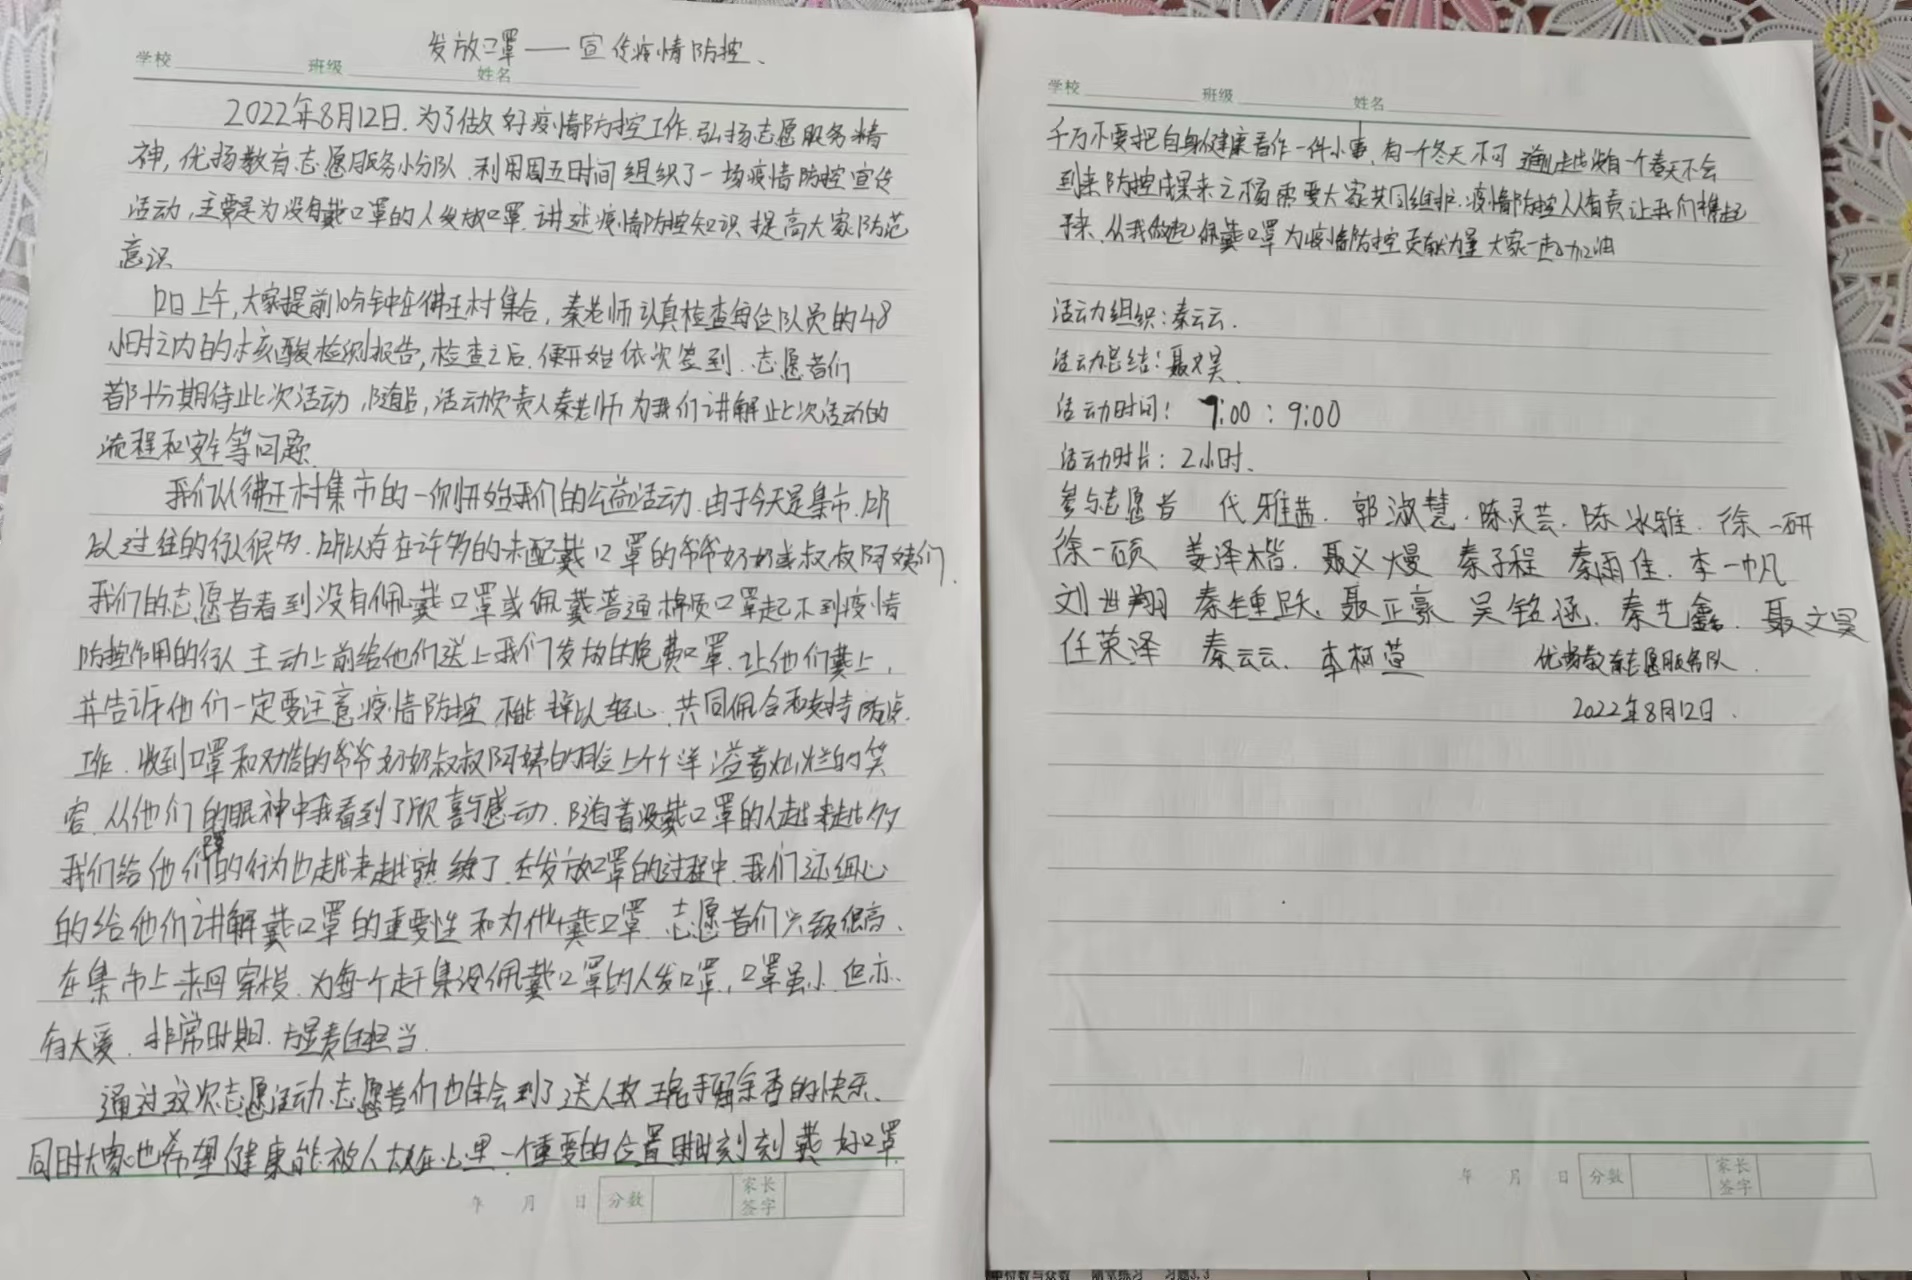 发放口罩——宣传疫情防控、
学校 班级 姓名
2022年8月12日.为了做好疫情防控工作.弘扬志愿服务精
神,优扬教育志愿服务小分队.利用周五时间组织了一场疫情防控宣传
活动,主要是为没有戴口罩的人发放口罩.讲述疫情防控知识 提高大家防范
意识
12日上午,大家提前10分钟在佛王村集合,秦老师认真检查每位队员的48
小时之内的核酸检测报告,检查之后.便开始依次签到.志愿者们
都十分期待此次活动,随后,活动负责人秦老师为我们讲解此次活动的
流程和安全等问题.
我们从佛王村集市的一侧开始我们的公益活动.由于今天是集市.所
以过往的行人很多.所以存在许多的未配戴口罩的爷爷奶奶或叔叔阿姨们.
我们的志愿者看到没有佩戴口罩或佩戴普通棉质口罩起不到疫情
防控作用的行人 主动上前给他们送上我们发放的免费口罩.让他们戴上,
并告诉他们一定要注意疫情防控 不能掉以轻心.共同佩合和支持防疫
工作.收到口罩和劝告的爷爷奶奶叔叔阿姨的脸上个个洋溢着灿烂的笑
容.从他们的眼神中我看到了欣喜与感动.随着没戴口罩的人越来越少
我们给他们的行为也越来越熟练了.在发放口罩的过程中.我们还细心
的给他们讲解戴口罩的重要性和为他们戴口罩.志愿者们兴致很高、
在集市上来回穿梭.为每个赶集没佩戴口罩的人发口罩,口罩虽小.但亦
有大爱.非常时期.方显责任担当.
通过这次志愿活动.志愿者们也体会到了送人玫瑰手留余香的快乐、
同时大家也希望健康能被人放在心里一个重要的位置时刻戴好口罩
年 月 日 分数 家长签字
学校 班级 姓名
千万不要把自身健康看作一件小事.有一个冬天不可逾越没有一个春天不会
到来防控成果来之不易需要大家共同维护.疫情防控人人有责让我们携起
手来.从我做起佩戴口罩为疫情防控贡献力量大家一起加油
活动组织:秦云云.
活动总结:聂文昊.
活动时间: 7:00:9:00
活动时长:2小时.
参与志愿者 代雅茜.郭淑慧.陈灵芸.陈冰雅.徐一研
徐一硕 姜泽楷.聂义熳 秦子程 秦雨佳.李一帆
刘世翔 秦钟跃.聂正豪 吴铭涵.秦艺鑫.聂文昊
任荣泽 秦云云.李柯萱 优扬教育志愿服务队.
2022年8月12日.
年 月 日 分数 家长签字